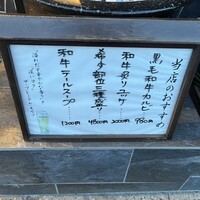 当店のおすすめ
黒毛和牛カルビ 980円
和牛炙りユッケ 2000円
希少部位三種盛り 4800円
和牛テールスープ 1200円